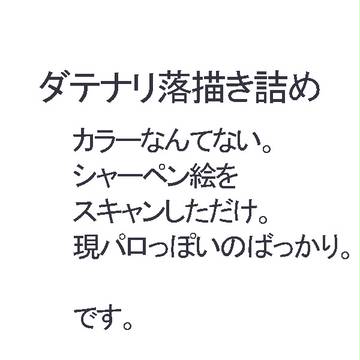 ダテナリ落描き詰め
カラーなんてない。
シャーペン絵を
スキャンしただけ。
現パロっぽいのばっかり。
です。